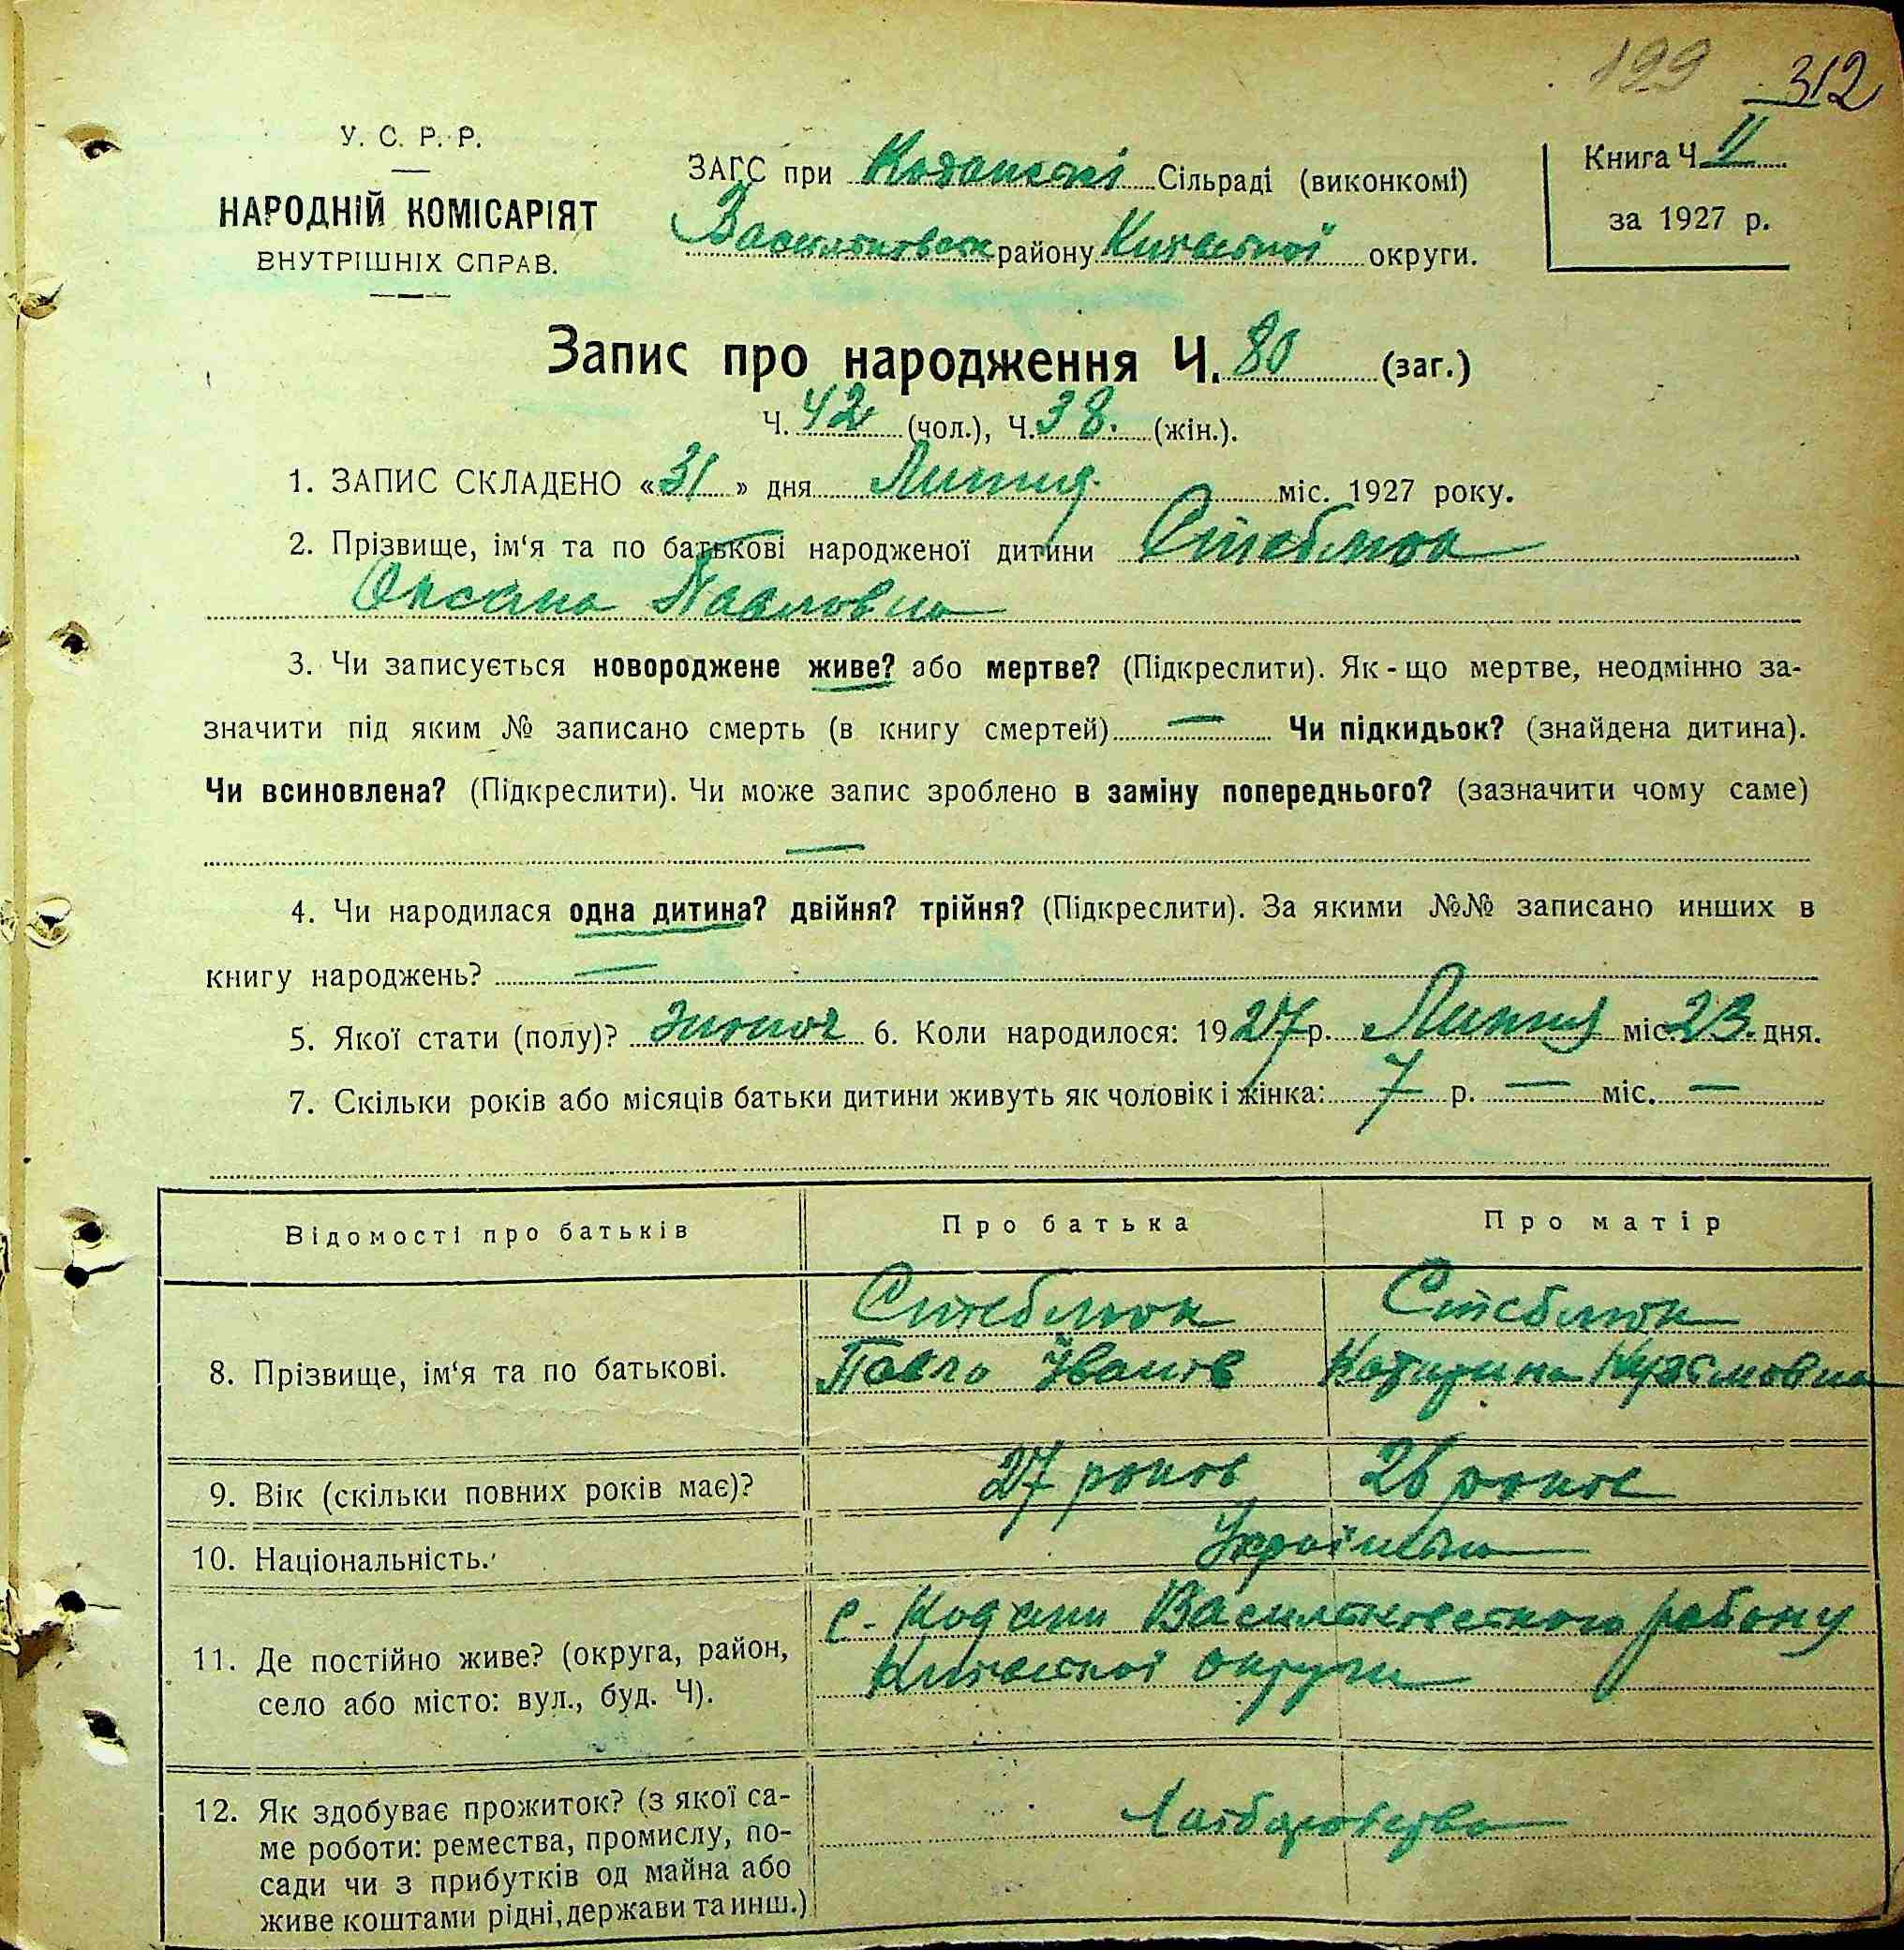 199 312
У. С. Р. Р.
НАРОДНІЙ КОМІСАРІЯТ
ВНУТРІШНІХ СПРАВ.
ЗАГС при Коданскі Сільраді (виконкомі)
Васильковськ району Київської округи.
Книга Ч. II
за 1927 р.
Запис про народження Ч. 80 (заг.)
Ч. 42 (чол.), Ч. 38. (жін.).
1. ЗАПИС СКЛАДЕНО «31» дня Липня міс. 1927 року.
2. Прізвище, ім‘я та по батькові народженої дитини Стеблюк
Оксана Павловна
3. Чи записується новороджене живе? або мертве? (Підкреслити). Як-що мертве, неодмінно за-
значити під яким № записано смерть (в книгу смертей) — Чи підкидьок? (знайдена дитина).
Чи всиновлена? (Підкреслити). Чи може запис зроблено в заміну попереднього? (зазначити чому саме)
—
4. Чи народилася одна дитина? двійня? трійня? (Підкреслити). За якими №№ записано инших в
книгу народжень? —
5. Якої стати (полу)? жіноч 6. Коли народилося: 1927 р. Липня міс. 23. дня.
7. Скільки років або місяців батьки дитини живуть як чоловік і жінка: 7 р. — міс. —
Відомості про батьків Про батька Про матір
8. Прізвище, ім‘я та по батькові.
Стеблюк Стеблюк
Павло Іванів Катерина Кузьмовна
9. Вік (скільки повних років має)? 27 років 26 років
10. Національність. Українці
11. Де постійно живе? (округа, район,
село або місто: вул., буд. Ч).
с. Кодаки Васильковського району
Київської округи
12. Як здобуває прожиток? (з якої са-
ме роботи: ремества, промислу, по-
сади чи з прибутків од майна або
живе коштами рідні, держави та инш.)
Хліборобство